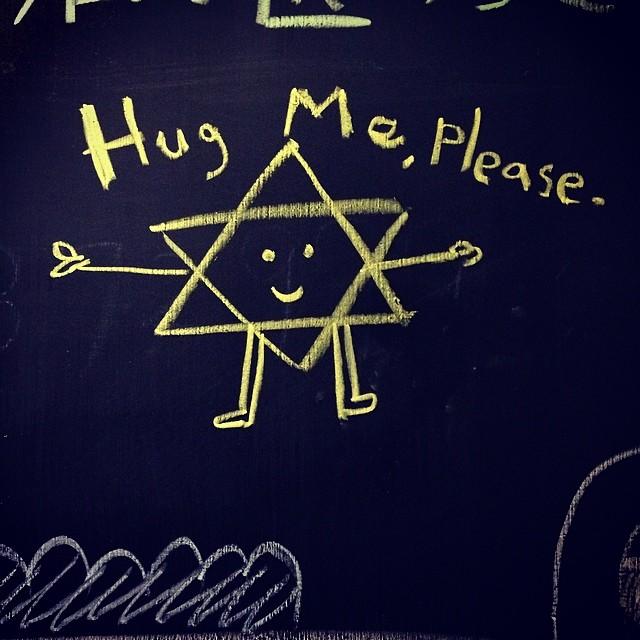 Hug Me, Please.